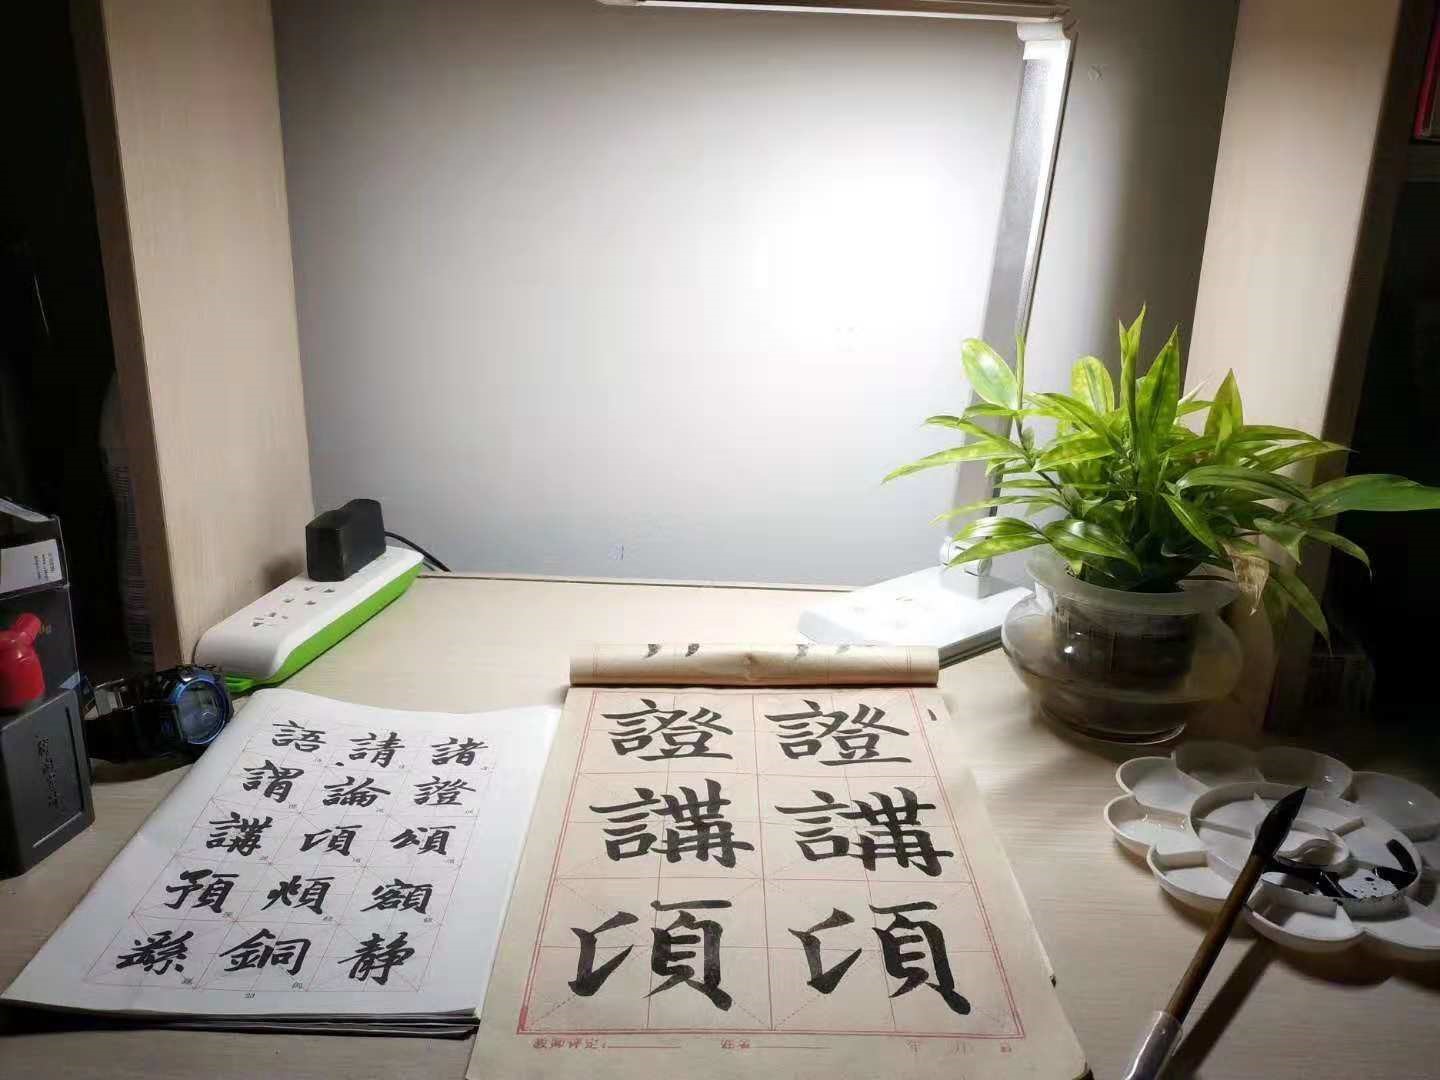 語 請 諸
謂 論 證
講 頃 頌
預 頫 額
繇 銅 静
23
證 證
講 講
頃 頃
教师评定: 姓名 年 月 日